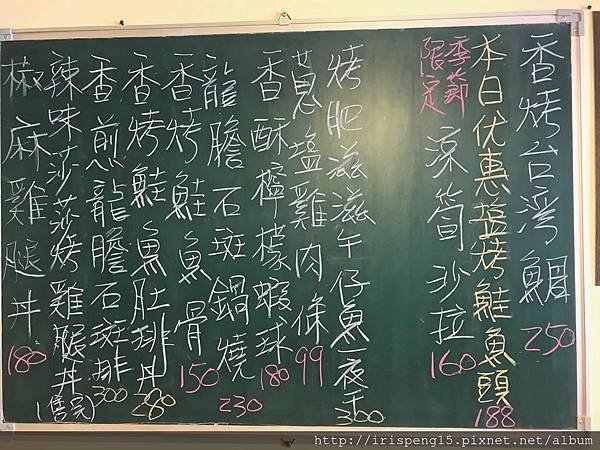 香烤台灣鯛 250
本日优惠盬烤鮭魚頭 188
季節限定 涼筍沙拉 160
烤肥滋滋午仔魚一夜干 300
蔥塩雞肉條 99
香酥檸檬蝦球 180
龍膽石斑鍋燒 230
香烤鮭魚骨 150
香烤鮭魚肚排丼 280
香煎龍膽石斑排 300
辣味莎莎烤雞腿丼(售完)
椒麻雞腿丼 180
http://irispeng15.pixnet.net/album